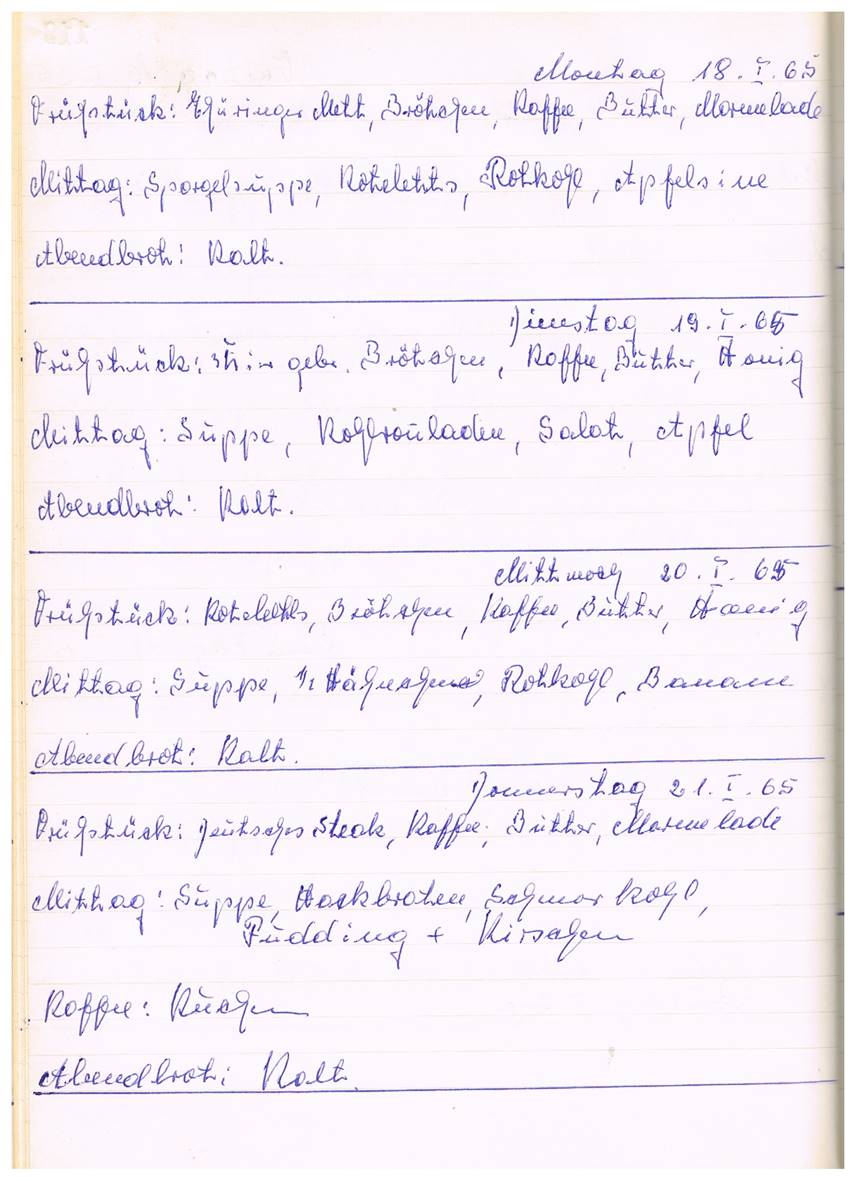 Montag 18.I.65
Frühstück: Thüringer Mett, Brötchen, Kaffee, Butter, Marmelade
Mittag: Spargelsuppe, Koteletts, Rotkohl, Apfelsine
Abendbrot: Kalt.
Dienstag 19.I.65
Frühstück: gebr. Brötchen, Kaffee, Butter, Honig
Mittag: Suppe, Kohlrouladen, Salat, Apfel
Abendbrot: Kalt.
Mittwoch 20.I.65
Frühstück: Koteletts, Brötchen, Kaffee, Butter, Honig
Mittag: Suppe, 1/2 Hähnchen, Rotkohl, Banane
Abendbrot: Kalt.
Donnerstag 21.I.65
Frühstück: Deutsches Steak, Kaffee, Butter, Marmelade
Mittag: Suppe, Hackbraten, Schmorkohl,
Pudding + Kirschen
Kaffee: Kuchen
Abendbrot: Kalt.